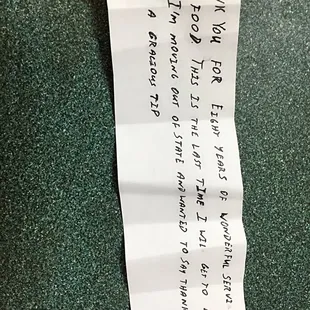 YOU FOR EIGHT YEARS OF WONDERFUL
FOOD THIS IS THE LAST TIME I WILL GET TO
I'M MOVING OUT OF STATE AND WANTED TO SAY
A GRACIOUS TIP